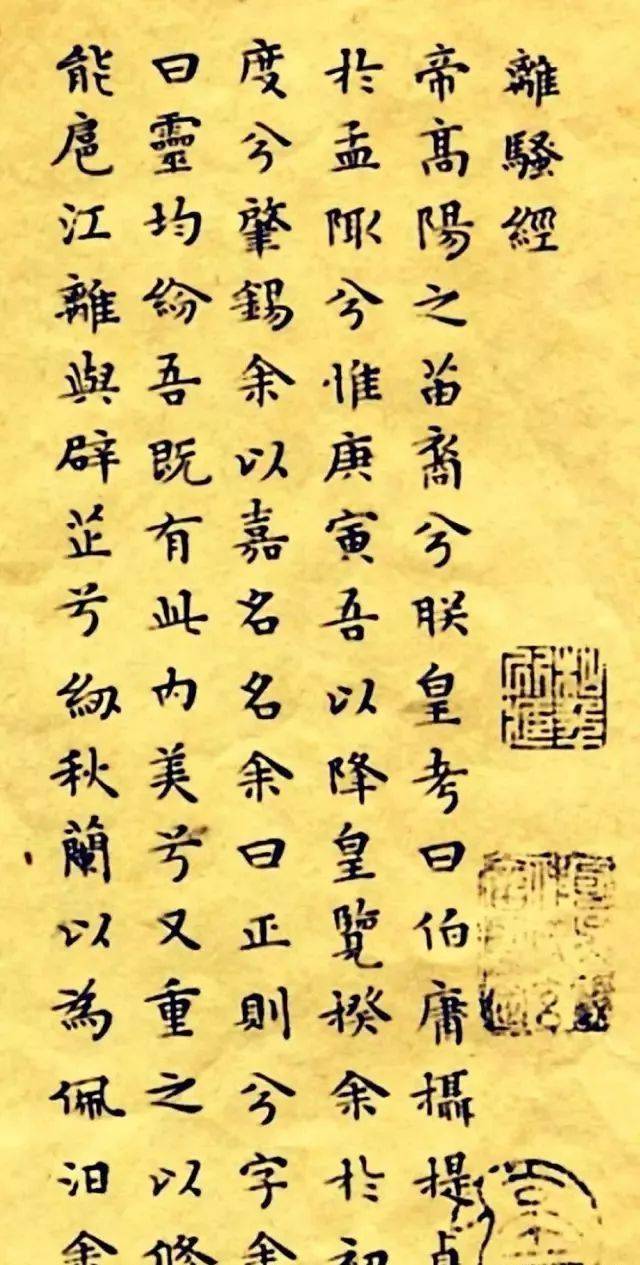 離騷經
帝高陽之苗裔兮朕皇考曰伯庸攝提貞
於孟陬兮惟庚寅吾以降皇覽揆余於初
度兮肇錫余以嘉名名余曰正則兮字余
曰靈均紛吾既有此內美兮又重之以脩
能扈江離與辟芷兮紉秋蘭以為佩汩余